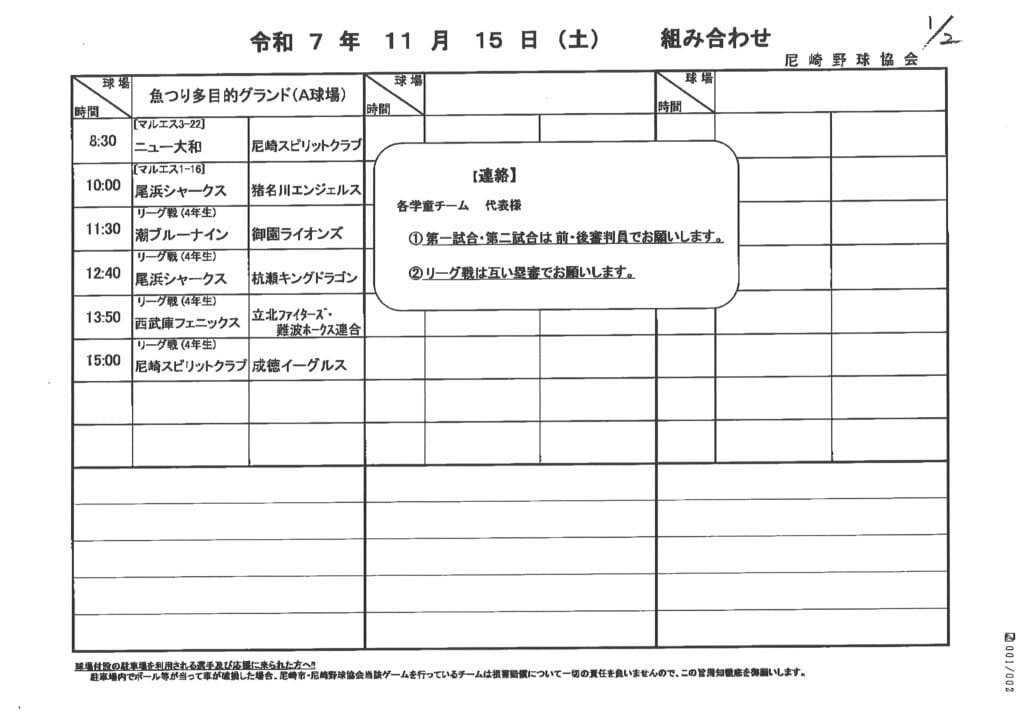 1/2
令和 7 年 11 月 15 日 (土) 組み合わせ
尼崎野球協会
球場
時間
魚つり多目的グランド(A球場)
球場
時間
球場
時間
8:30
[マルエス3-22]
ニュー大和
尼崎スピリットクラブ
10:00
[マルエス1-16]
尾浜シャークス
猪名川エンジェルス
11:30
リーグ戦(4年生)
潮ブルーナイン
御園ライオンズ
12:40
リーグ戦(4年生)
尾浜シャークス
杭瀬キングドラゴン
13:50
リーグ戦(4年生)
西武庫フェニックス
立北ファイターズ・
難波ホークス連合
15:00
リーグ戦(4年生)
尼崎スピリットクラブ
成徳イーグルス
【連絡】
各学童チーム 代表様
①第一試合・第二試合は 前・後審判員でお願いします。
②リーグ戦は互い塁審でお願いします。
球場付設の駐車場を利用される選手及び応援に来られた方へ!!
駐車場内でボール等が当って車が破損した場合、尼崎市・尼崎野球協会当該ゲームを行っているチームは損害賠償について一切の責任を負いませんので、この旨周知徹底を御願いします。
001/002